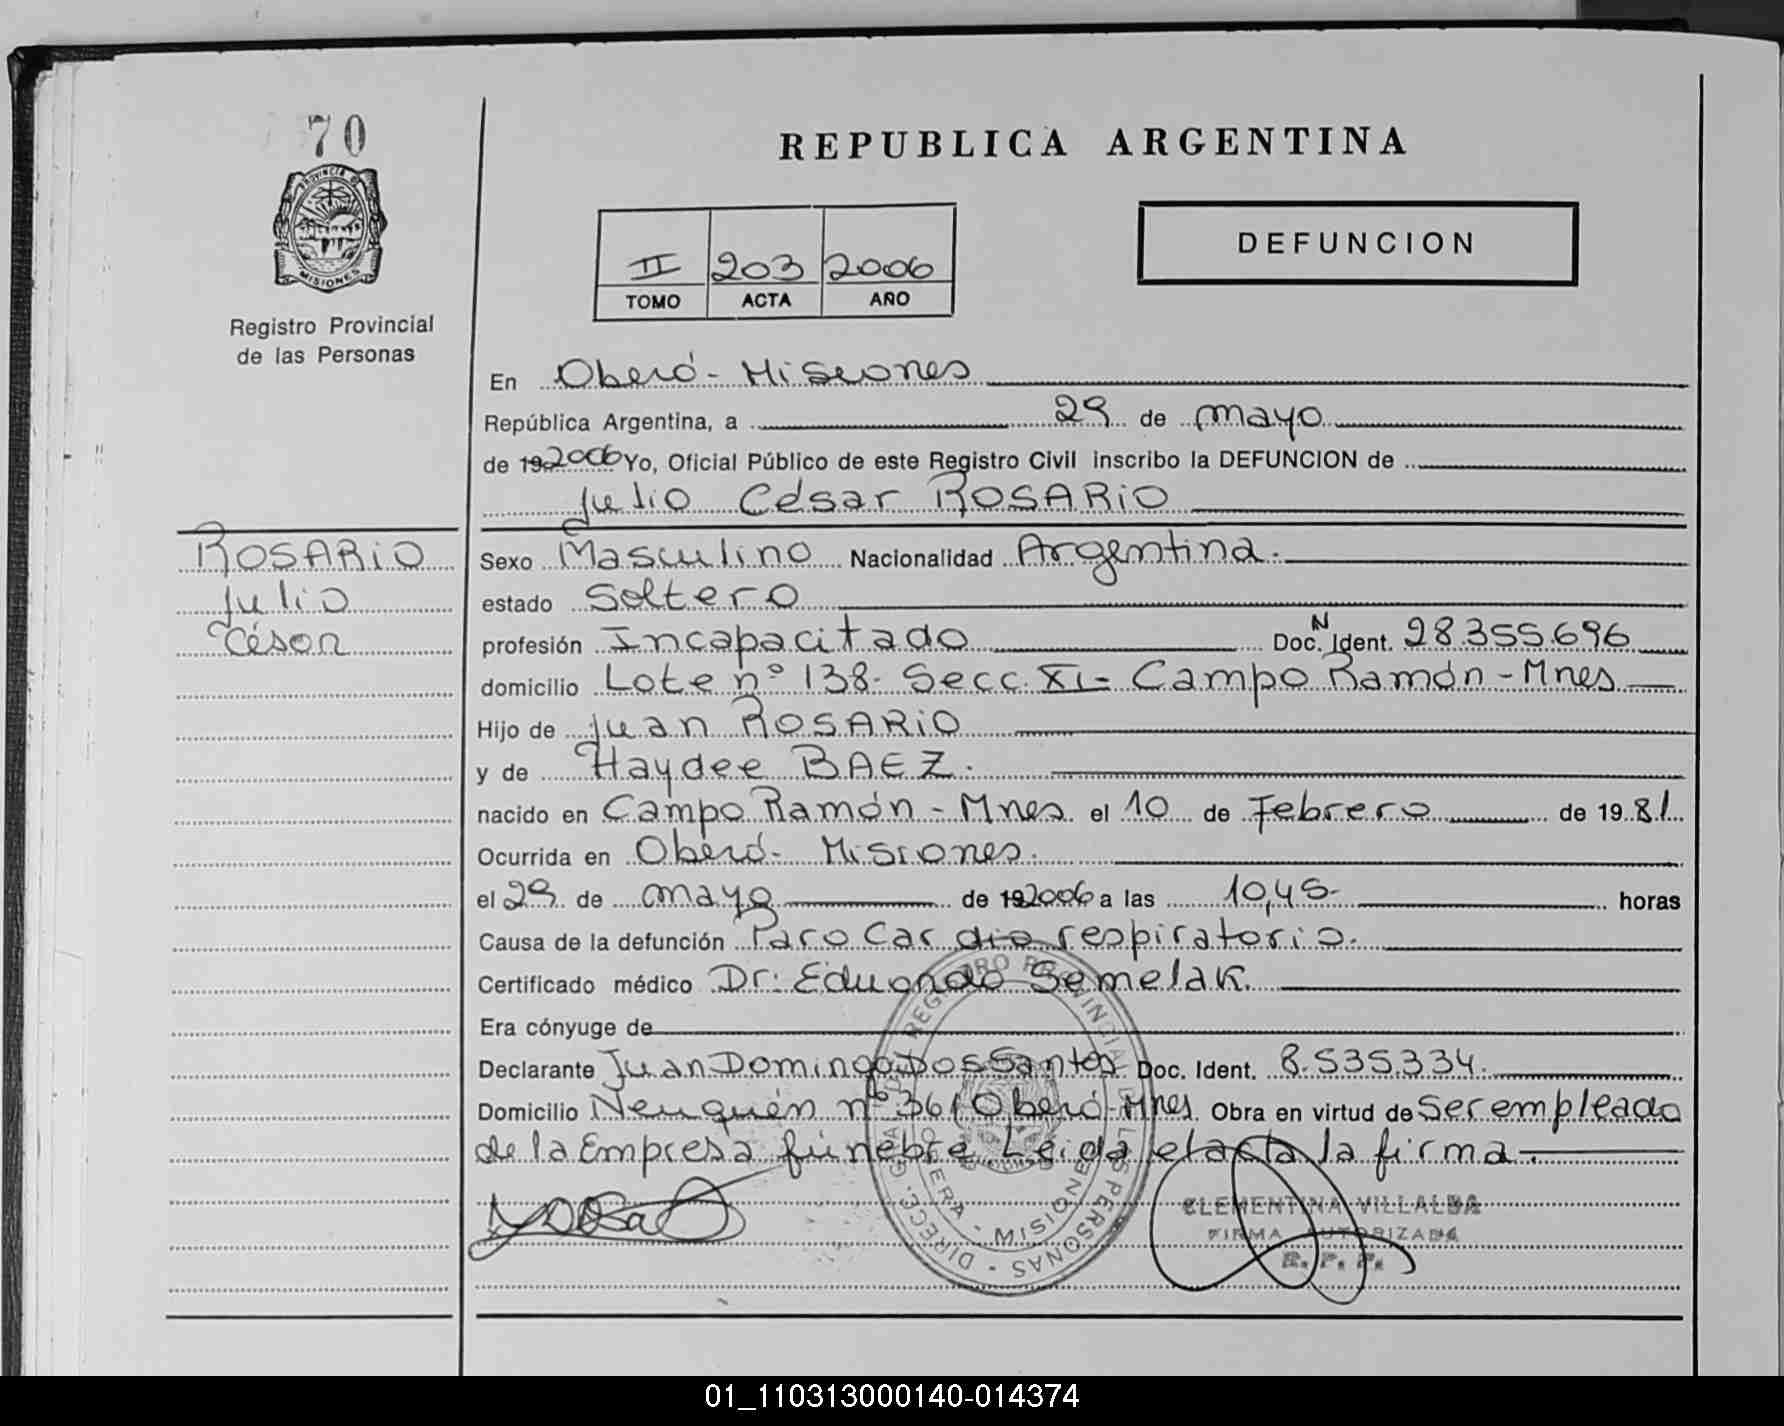 70
PROVINCIA DE
MISIONES
Registro Provincial
de las Personas
REPUBLICA ARGENTINA
II 203 2006
TOMO ACTA AÑO
DEFUNCION
En Oberá - Misiones
República Argentina, a 29 de mayo
de 19 2006 Yo, Oficial Público de este Registro Civil inscribo la DEFUNCION de
Julio César ROSARIO
ROSARIO
Julio
César
Sexo Masculino Nacionalidad Argentina.
estado Soltero
profesión Incapacitado Doc. N Ident. 28.355.696
domicilio Lote nº 138- Secc. XI- Campo Ramón - Mnes
Hijo de Juan ROSARIO
y de Haydee BAEZ.
nacido en Campo Ramón - Mnes. el 10 de Febrero de 19 81
Ocurrida en Oberá- Misiones.
el 29 de mayo de 19 2006 a las 10,45- horas
Causa de la defunción Paro Cardio respiratorio.
Certificado médico Dr: Eduardo Semelak.
Era cónyuge de
Declarante Juan Domingo Dos Santos Doc. Ident. 8.535.334.
Domicilio Neuquén nº 361 Oberá-Mnes. Obra en virtud de Ser empleado
de la Empresa fúnebre Leida el acta la firma.
CLEMENTINA VILLALBA
FIRMA AUTORIZADA
R. P. P.
REGISTRO PROVINCIAL DE LAS PERSONAS - DIRECC. GRAL.
MISIONES
01_110313000140-014374